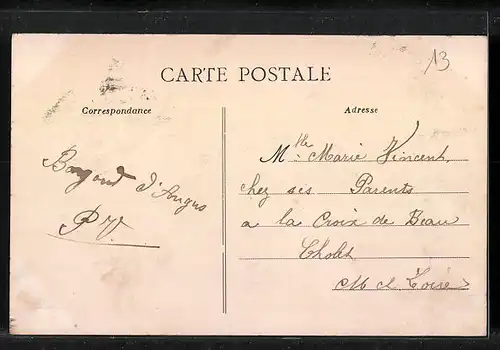 13
CARTE POSTALE
Correspondance
Adresse
Mlle Marie Vincent,
chez ses Parents
a la Croix de Beau
Cholet
M et Loire
d'Angers
P V.